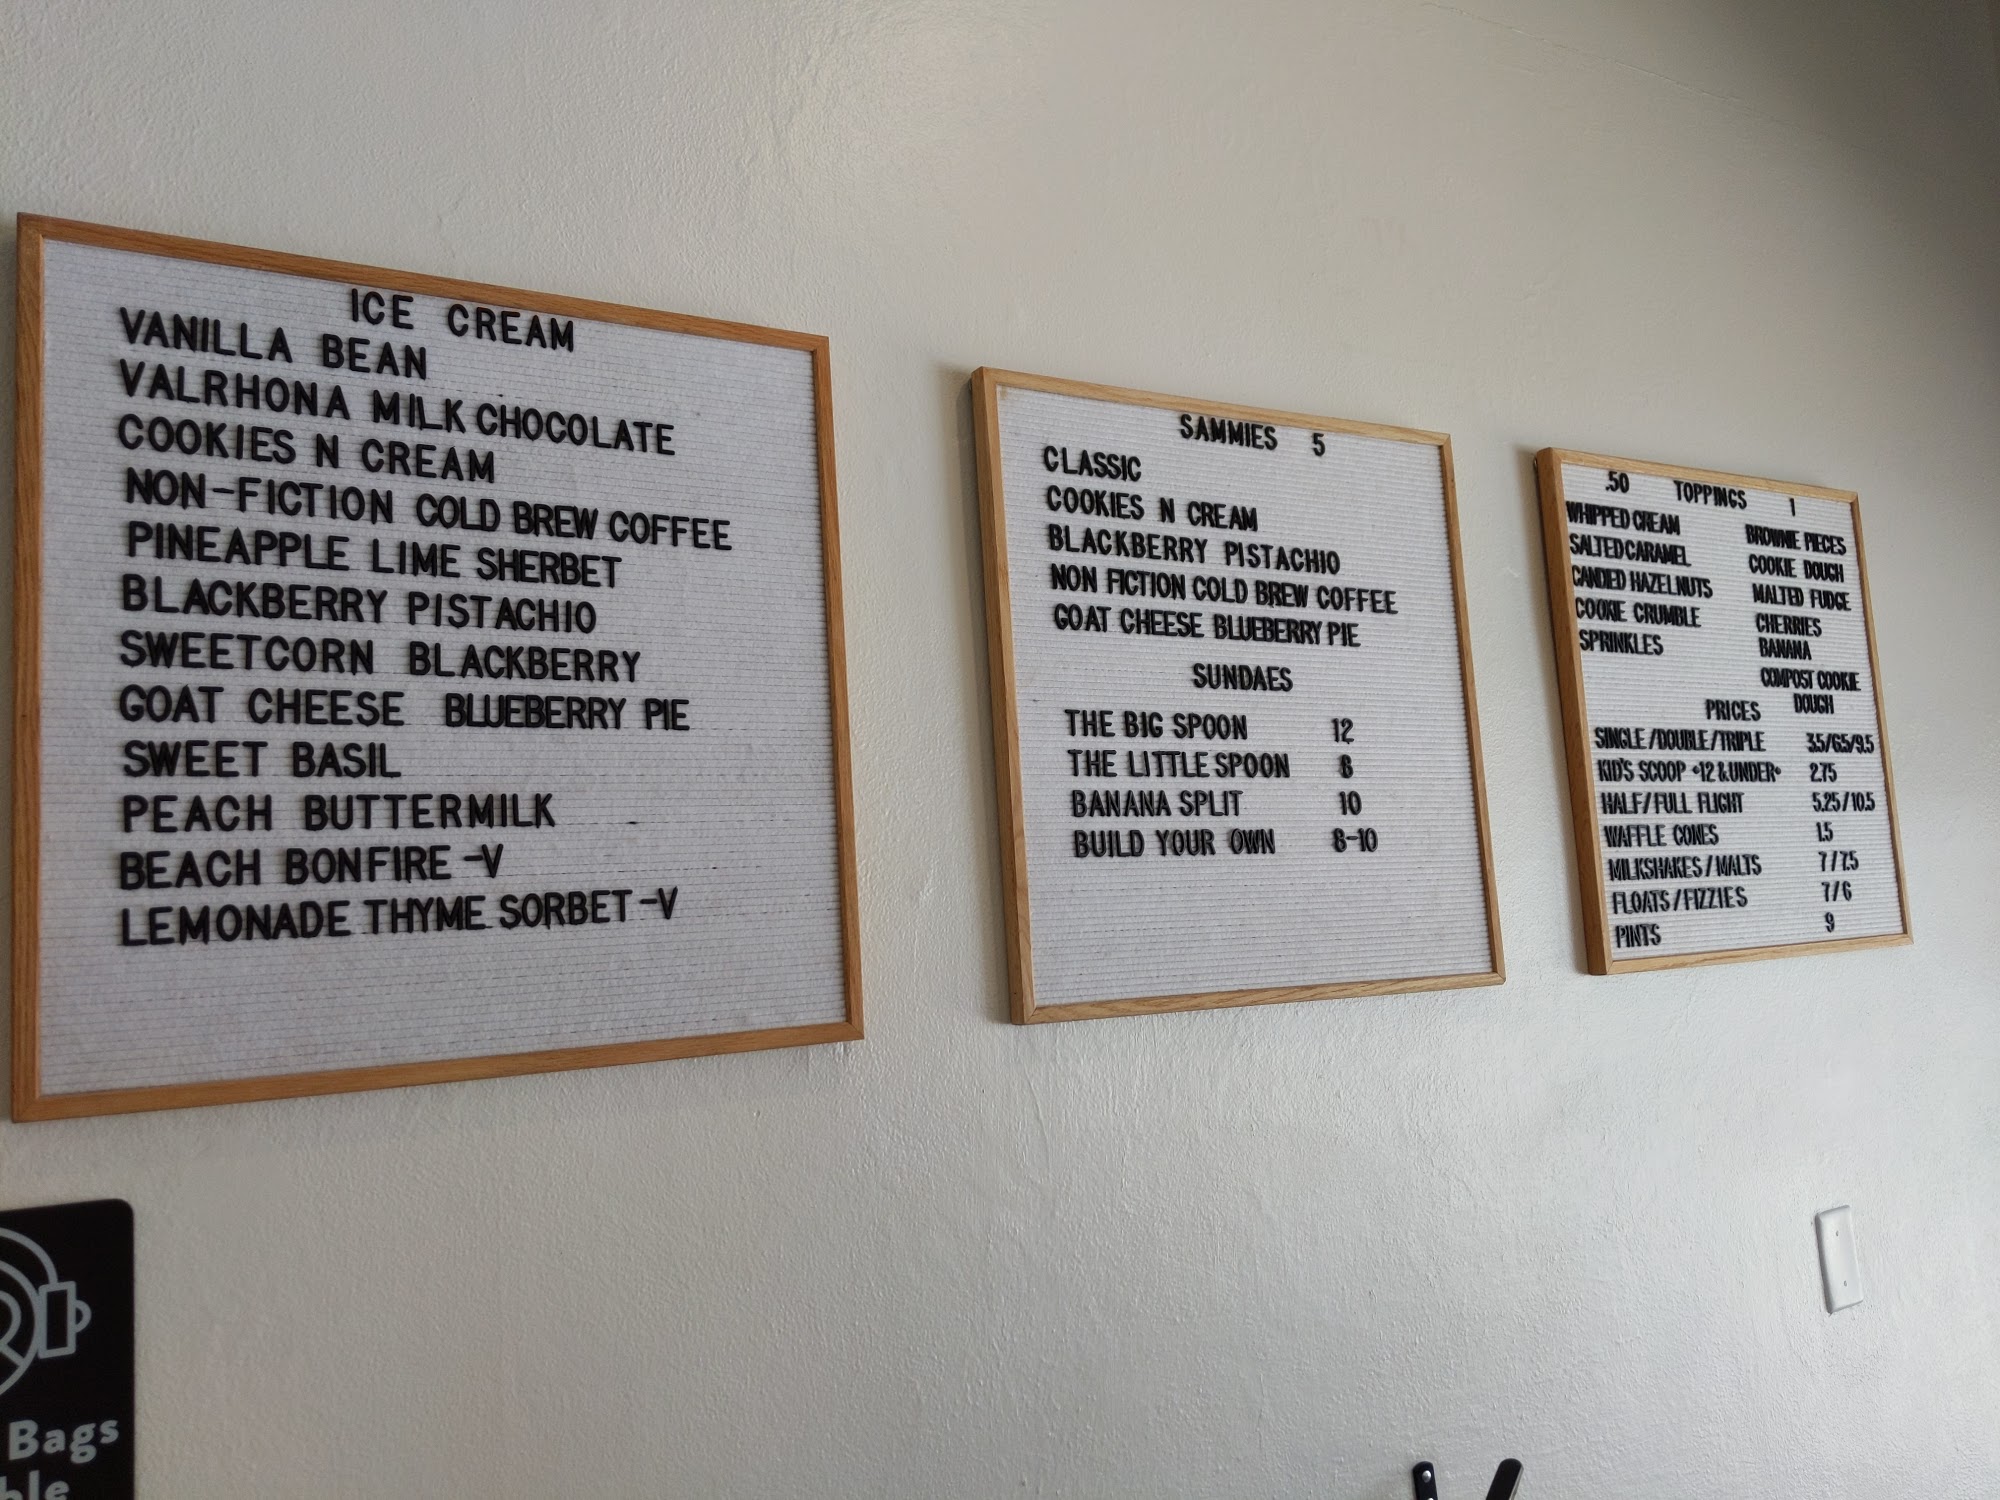 ICE CREAM
VANILLA BEAN
VALRHONA MILK CHOCOLATE
COOKIES N CREAM
NON-FICTION COLD BREW COFFEE
PINEAPPLE LIME SHERBET
BLACKBERRY PISTACHIO
SWEETCORN BLACKBERRY
GOAT CHEESE BLUEBERRY PIE
SWEET BASIL
PEACH BUTTERMILK
BEACH BONFIRE -V
LEMONADE THYME SORBET -V
SAMMIES 5
CLASSIC
COOKIES N CREAM
BLACKBERRY PISTACHIO
NON FICTION COLD BREW COFFEE
GOAT CHEESE BLUEBERRY PIE
SUNDAES
THE BIG SPOON 12
THE LITTLE SPOON 8
BANANA SPLIT 10
BUILD YOUR OWN 8-10
.50 TOPPINGS 1
WHIPPED CREAM BROWNIE PIECES
SALTED CARAMEL COOKIE DOUGH
CANDIED HAZELNUTS MALTED FUDGE
COOKIE CRUMBLE CHERRIES
SPRINKLES BANANA
COMPOST COOKIE
DOUGH
PRICES
SINGLE/DOUBLE/TRIPLE 3.5/6.5/9.5
KID'S SCOOP •12 & UNDER• 2.75
HALF/FULL FLIGHT 5.25/10.5
WAFFLE CONES 1.5
MILKSHAKES/MALTS 7/7.5
FLOATS/FIZZIES 7/6
PINTS 9
Bags